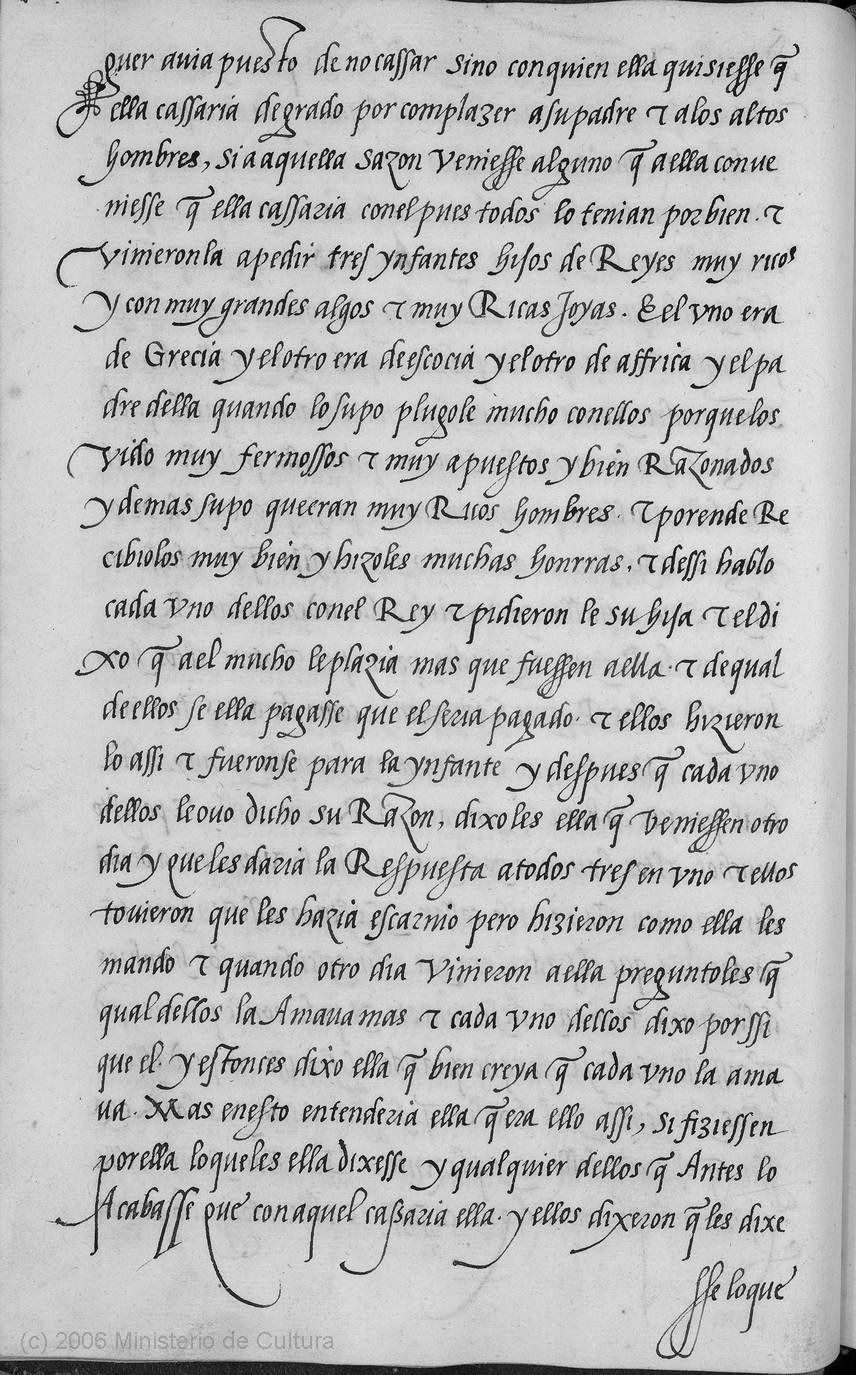 quer auia puesto de no cassar sino con quien ella quisiesse q̃
ella cassaria de grado por complazer a su padre τ a los altos
hombres, si a aquella sazon veniesse alguno q̃ a ella conue
niesse q̃ ella cassaria con el pues todos lo tenian por bien. τ
vinieron la a pedir tres ynfantes hijos de Reyes muy ricos
y con muy grandes algos τ muy Ricas Joyas. E el vno era
de Grecia y el otro era de escocia y el otro de affrica y el pa
dre della quando lo supo plugole mucho con ellos porque los
vido muy fermossos τ muy apuestos y bien Razonados
y demas supo que eran muy Ricos hombres. τ por ende Re
cibiolos muy bien y hizoles muchas honrras, τ dessi hablo
cada vno dellos con el Rey τ pidieron le su hija τ el di
xo q̃ a el mucho le plazia mas que fuessen a ella. τ de qual
de ellos se ella pagasse que el seria pagado. τ ellos hizieron
lo assi τ fueronse para la ynfante y despues q̃ cada vno
dellos le ouo dicho su Razon, dixoles ella q̃ veniessen otro
dia y que les daria la Respuesta a todos tres en vno τ ellos
touieron que les hazia escarnio pero hizieron como ella les
mando τ quando otro dia vinieron a ella preguntoles q̃
qual dellos la Amaua mas τ cada vno dellos dixo por ssi
que el. y estonces dixo ella q̃ bien creya q̃ cada vno la ama
ua. Mas en esto entenderia ella q̃ era ello assi, si fiziessen
por ella lo que les ella dixesse y qualquier dellos q̃ Antes lo
Acabasse que con aquel cassaria ella. y ellos dixeron q̃ les dixe
sse lo que
(c) 2006 Ministerio de Cultura